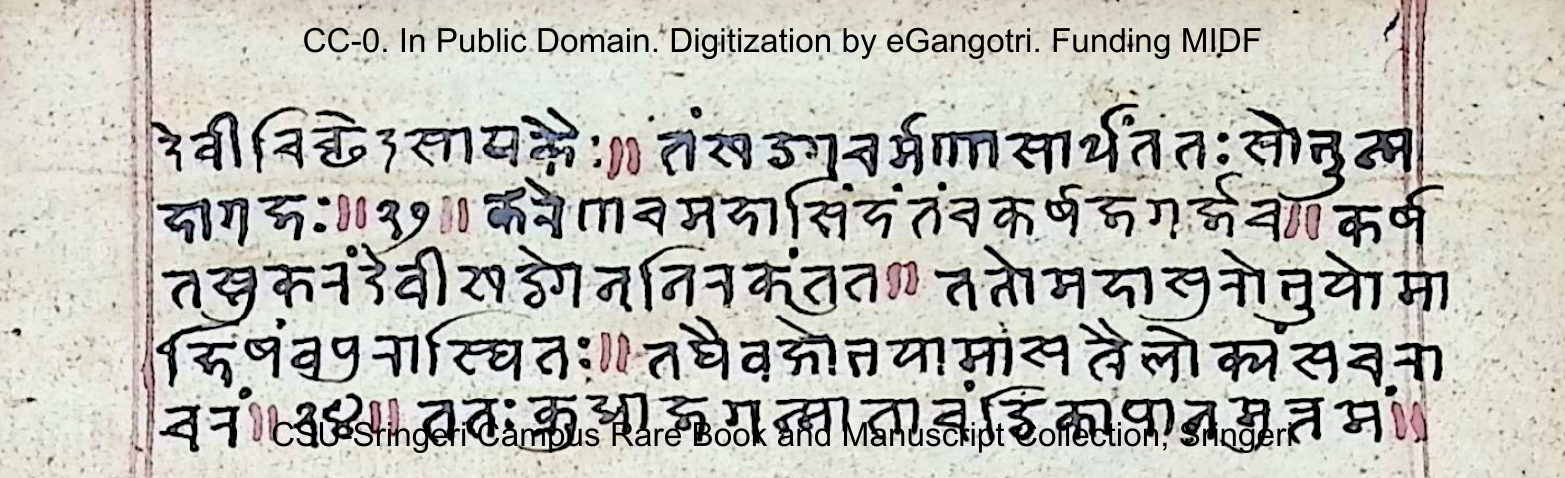 CC-0. In Public Domain. Digitization by eGangotri. Funding MIDF
देवी चिछेद सायकैः॥ तं खड्गचर्मणा सार्धं ततः सोभुन्म
हागजः॥३१॥ करेण च महासिंहं तं चकर्ष जगर्ज च॥ कर्ष
तस्तु करं देवी खड्गेन निरकृंतत॥ ततो महासुरो भुयो मा
हिषं वपुरास्थितः॥ तथैव क्षोभयामास त्रैलोक्यं सचरा
चरं॥ ततः क्रुधा जगन्माता चंडिका पानमुत्तमं॥
CSU-Sringeri Campus Rare Book and Manuscript Collection, Sringeri